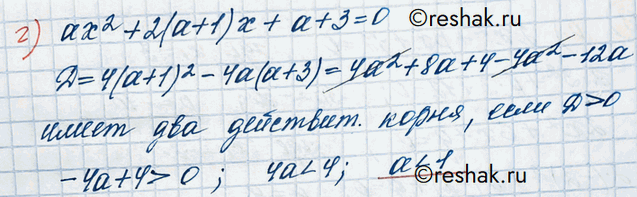 г) ax² + 2(a+1)x + a+3=0
D=4(a+1)² - 4a(a+3) = 4a² + 8a + 4 - 4a² - 12a
имеет два действит. корня, если D>0
-4a+4>0 ; 4a<4; a<1
©Reshak.ru